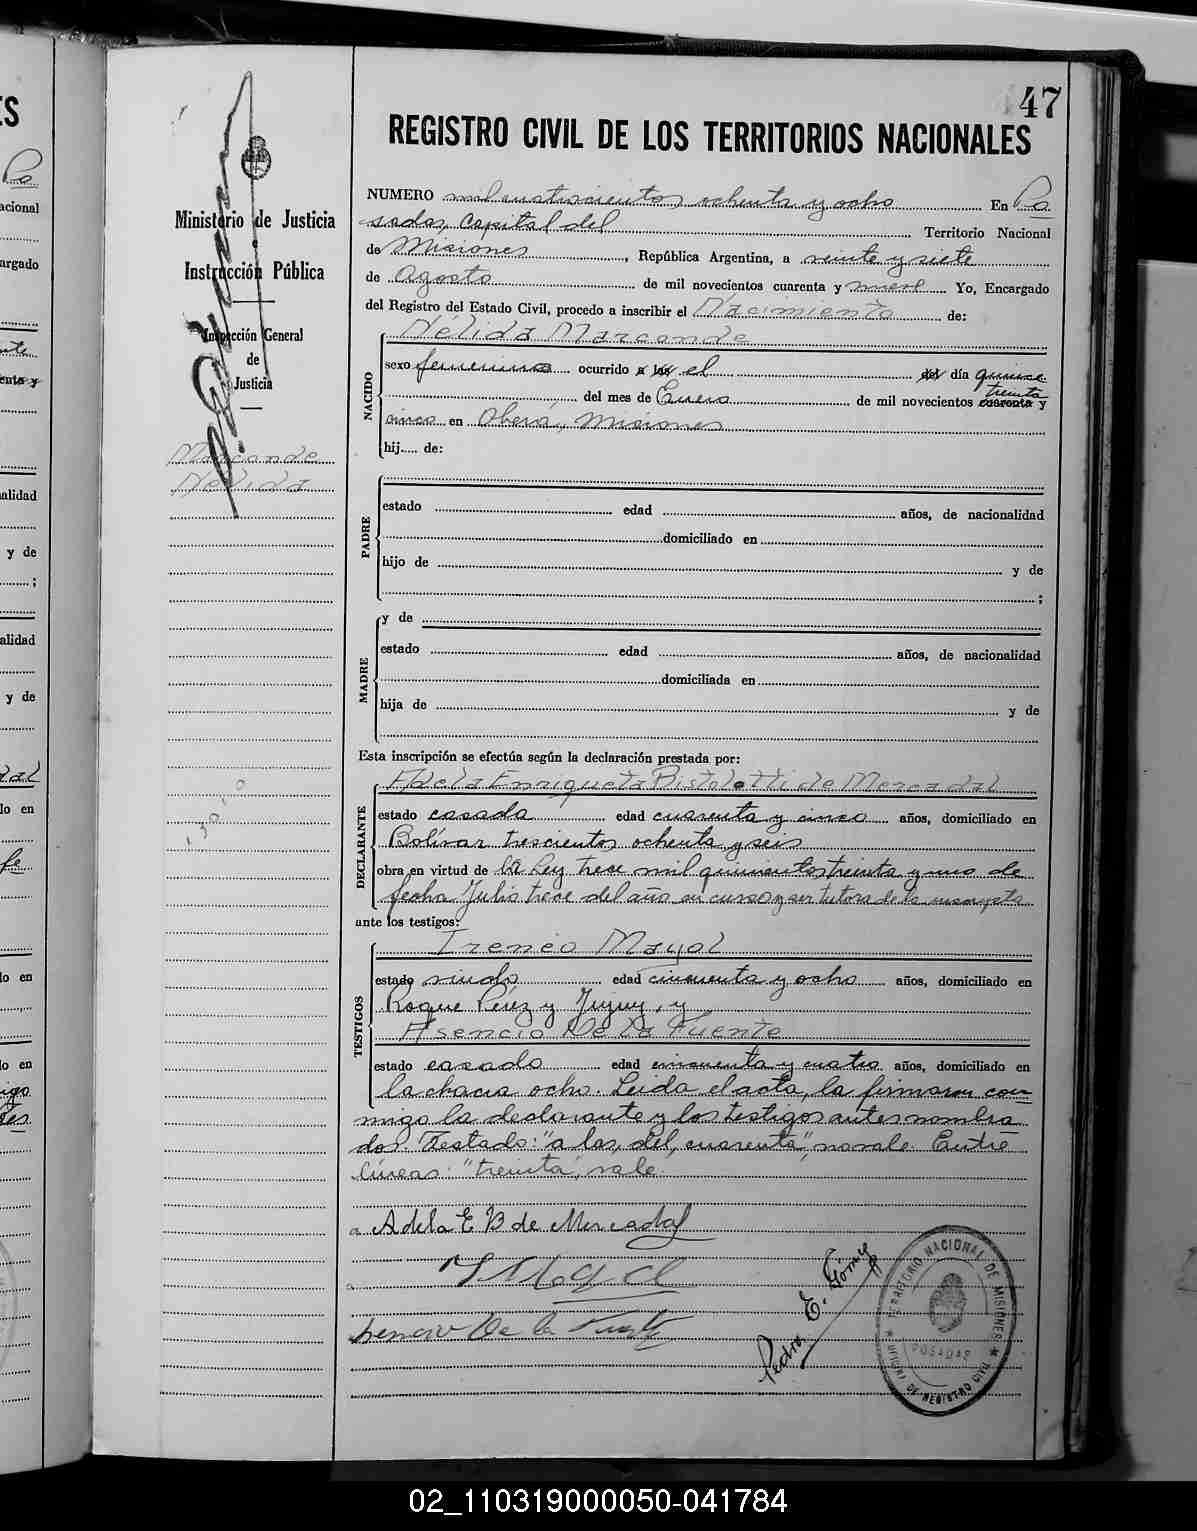 47
REGISTRO CIVIL DE LOS TERRITORIOS NACIONALES
Ministerio de Justicia
e
Instrucción Pública
Inspección General
de
Justicia
Marconde
Nélida
NUMERO mil cuatrocientos ochenta y ocho En Po
sadas, capital del Territorio Nacional
de Misiones, República Argentina, a veinte y siete
de Agosto de mil novecientos cuarenta y nueve Yo, Encargado
del Registro del Estado Civil, procedo a inscribir el Nacimiento de:
Nélida Marconde
NACIDO
sexo femenino ocurrido a las el del día quince
treinta
del mes de Enero de mil novecientos cuarenta y
cinco en Oberá, Misiones
hij..... de:
PADRE
estado edad años, de nacionalidad
domiciliado en
hijo de y de
;
MADRE
y de
estado edad años, de nacionalidad
domiciliada en
hija de y de
Esta inscripción se efectúa según la declaración prestada por:
Adela Enriqueta Bistoletti de Mercadal
DECLARANTE
estado casada edad cuarenta y cinco años, domiciliado en
Bolívar trescientos ochenta y seis
obra en virtud de la Ley trece mil quinientos treinta y uno de
fecha Julio trece del año en curso y ser tutora de la inscripta
ante los testigos:
Ireneo Mayol
TESTIGOS
estado viudo edad cincuenta y ocho años, domiciliado en
Roque Pérez y Jujuy, y
Asencio De la Fuente
estado casado edad cincuenta y cuatro años, domiciliado en
la chacra ocho. Leida el acta, la firmaron con=
migo la declarante y los testigos antes nombra
dos. Testado: "a las, del, cuarenta", no vale. Entre
líneas: "treinta", vale.
Adela E B de Mercadal
Asencio De la Fuente
Pedro E. Gómez
TERRITORIO NACIONAL DE MISIONES
POSADAS
OFICINA DE REGISTRO CIVIL
02_110319000050-041784